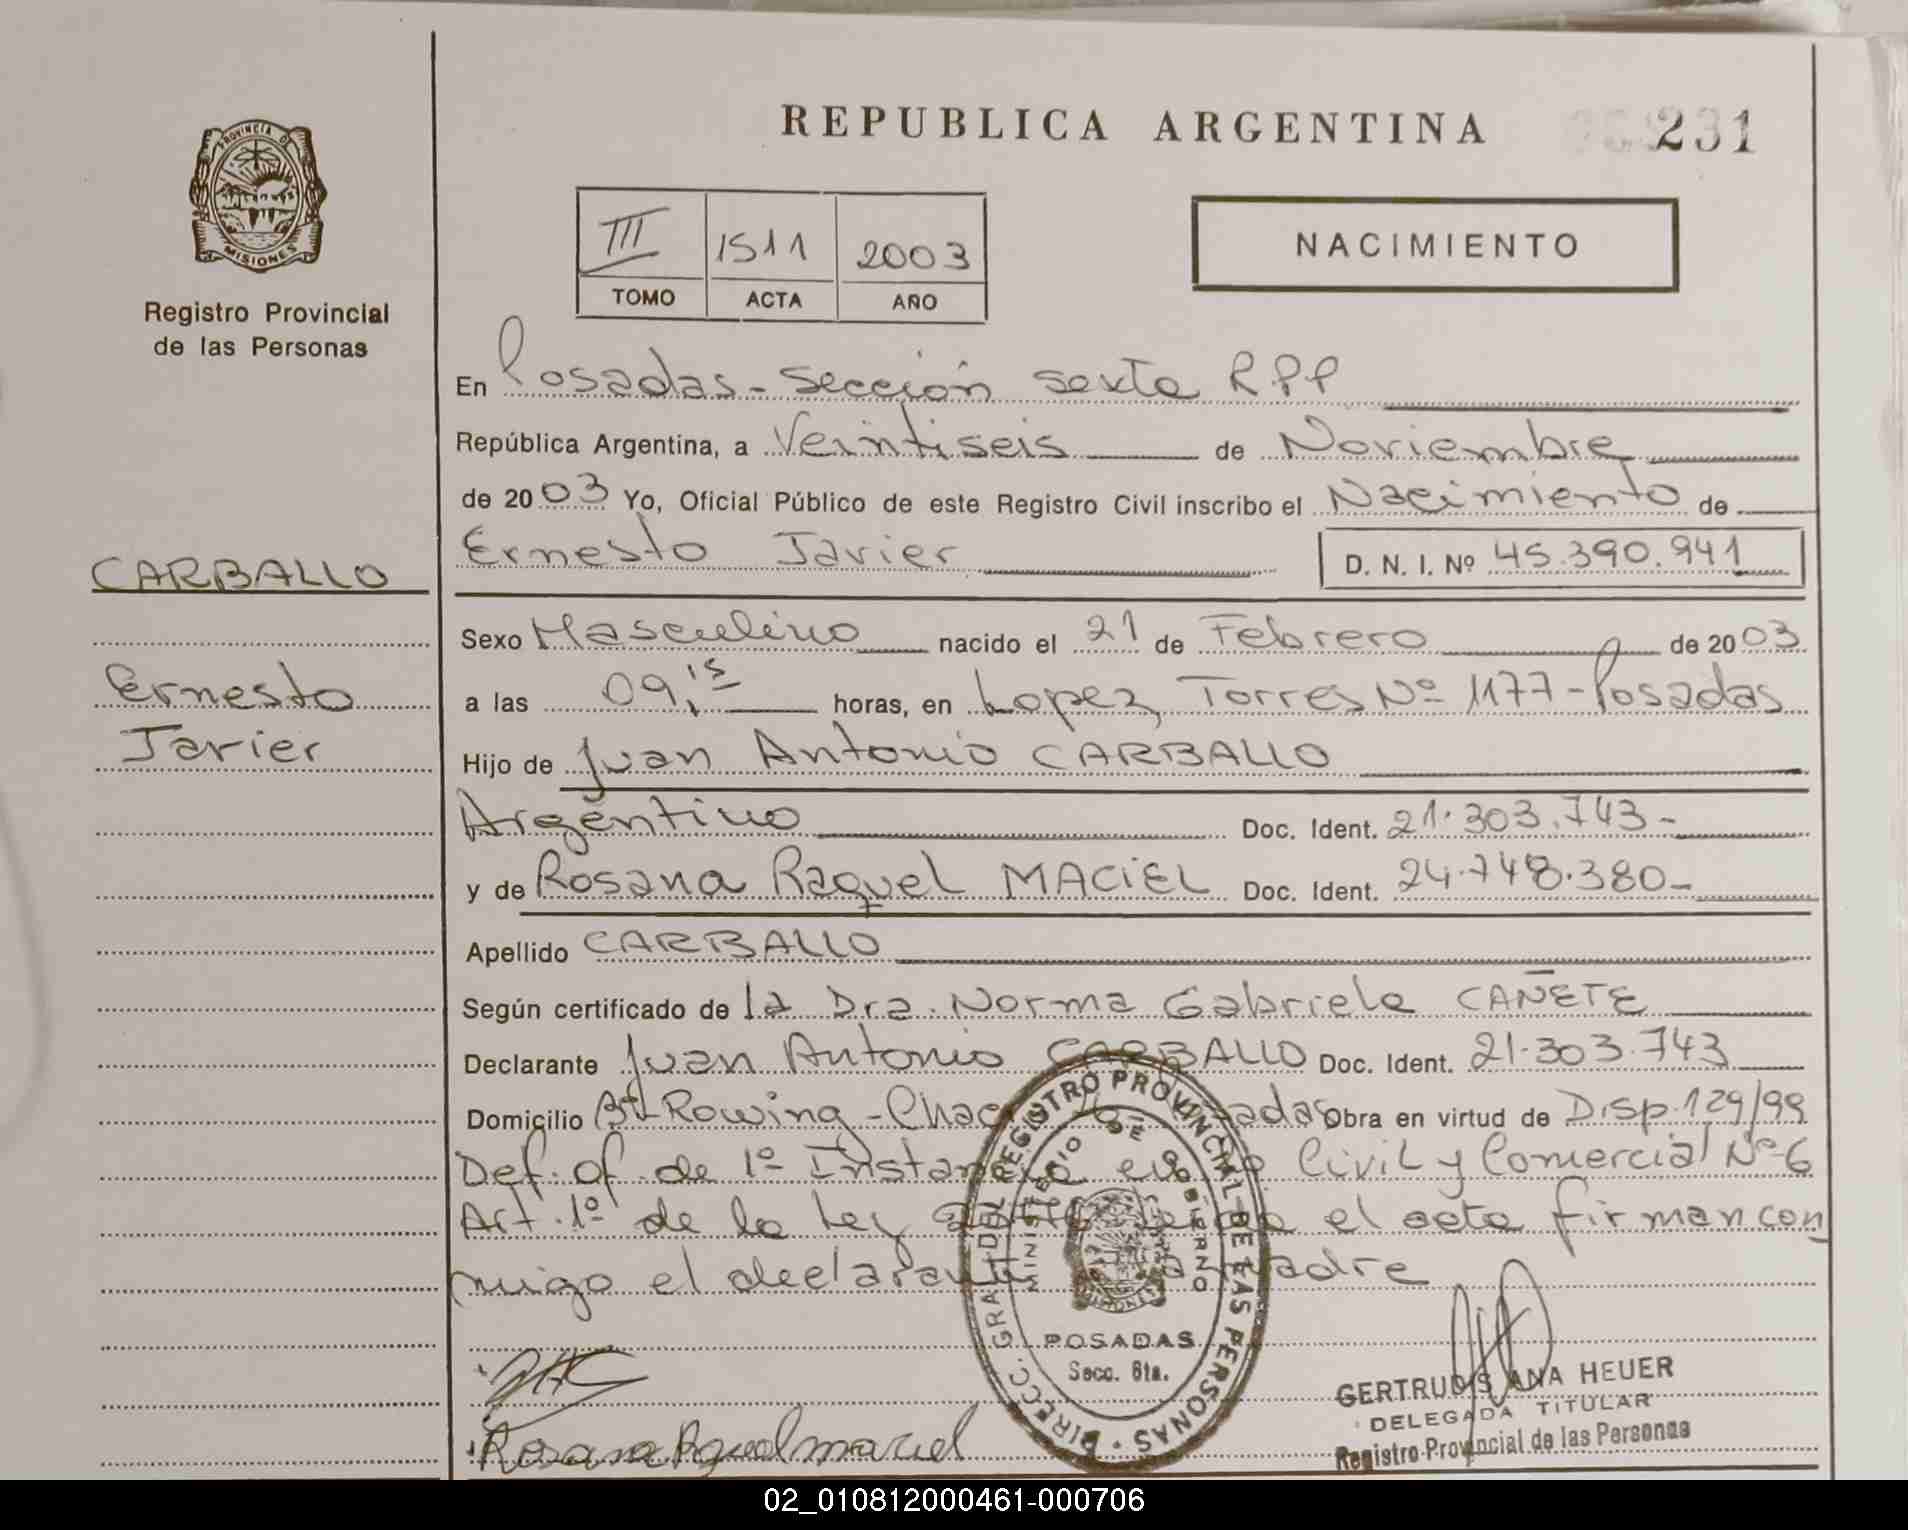 REPUBLICA ARGENTINA
231
PROVINCIA DE
MISIONES
Registro Provincial
de las Personas
III 1511 2003
TOMO ACTA AÑO
NACIMIENTO
En Posadas - Sección sexta RPP
República Argentina, a Veintiseis de Noviembre
de 2003 Yo, Oficial Público de este Registro Civil inscribo el Nacimiento de
CARBALLO
Ernesto Javier D. N. I. Nº 45.390.941
Sexo Masculino nacido el 21 de Febrero de 2003
Ernesto
a las 09,15 horas, en Lopez Torres Nº 1177 - Posadas
Javier
Hijo de Juan Antonio CARBALLO
Argentino Doc. Ident. 21.303.743-
y de Rosana Raquel MACIEL Doc. Ident. 24.748.380-
Apellido CARBALLO
Según certificado de la Dra. Norma Gabriela CAÑETE
Declarante Juan Antonio CARBALLO Doc. Ident. 21.303.743
Domicilio Bº Rowing - Obra en virtud de Disp. 129/99
Def. of. de 1º Instancia en lo Civil y Comercial Nº 6
Art. 1º de la Ley el acta firman con
migo el declarante madre
DIRECC. GRAL. DEL REGISTRO PROVINCIAL DE LAS PERSONAS
MINISTERIO DE GOBIERNO
MISIONES
POSADAS
Secc. 6ta.
Rosana Raquel maciel
GERTRUDIS ANA HEUER
DELEGADA TITULAR
Registro Provincial de las Personas
02_010812000461-000706